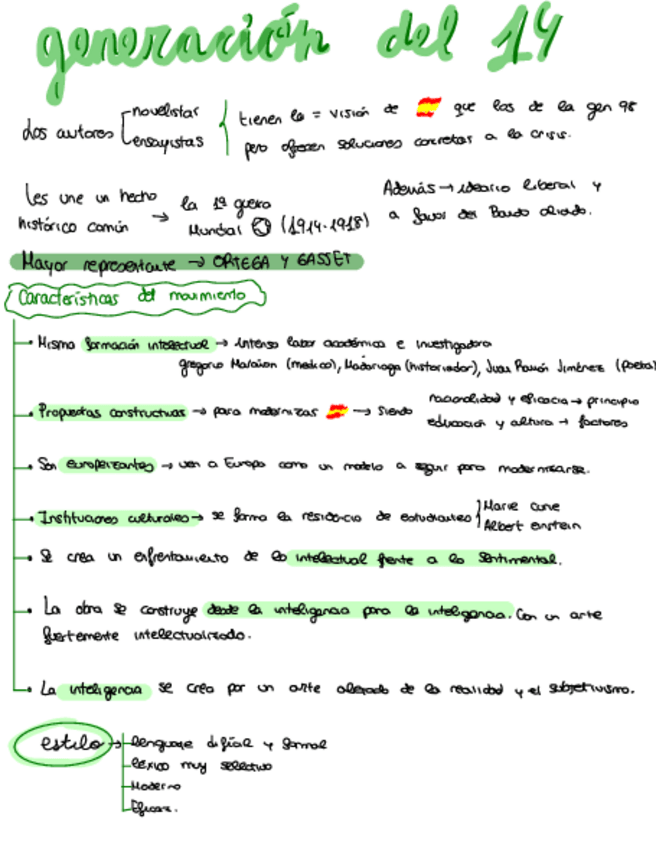 generación del 14
Los autores novelistas ensayistas tienen la = visión de 🇪🇸 que los de la gen 98
pero ofrecen soluciones concretas a la crisis.
Les une un hecho histórico común → la 1ª guerra Mundial (1914-1918)
Además → ideario liberal y a favor del Bando aliado.
Mayor representante → ORTEGA Y GASSET
Características del movimiento
Misma formación intelectual → intensa labor académica e investigadora
gregorio Marañon (medico), Madariaga (historiador), Juan Ramón Jiménez (poeta)
Propuestas constructivas → para modernizar 🇪🇸 → siendo racionalidad y eficacia → principio
educación y altura → factores
Son europeizantes → ven a Europa como un modelo a seguir para modernizarse.
Instituciones culturales → se forma la residencia de estudiantes Marie curie
Albert einstein
Se crea un enfrentamiento de lo intelectual frente a lo sentimental.
La obra se construye desde la inteligencia para la inteligencia. Con un arte
fuertemente intelectualizado.
La inteligencia se crea por un arte alejado de la realidad y el subjetivismo.
estilo → lenguaje difícil y formal
léxico muy selectivo
Moderno
Eficaz.